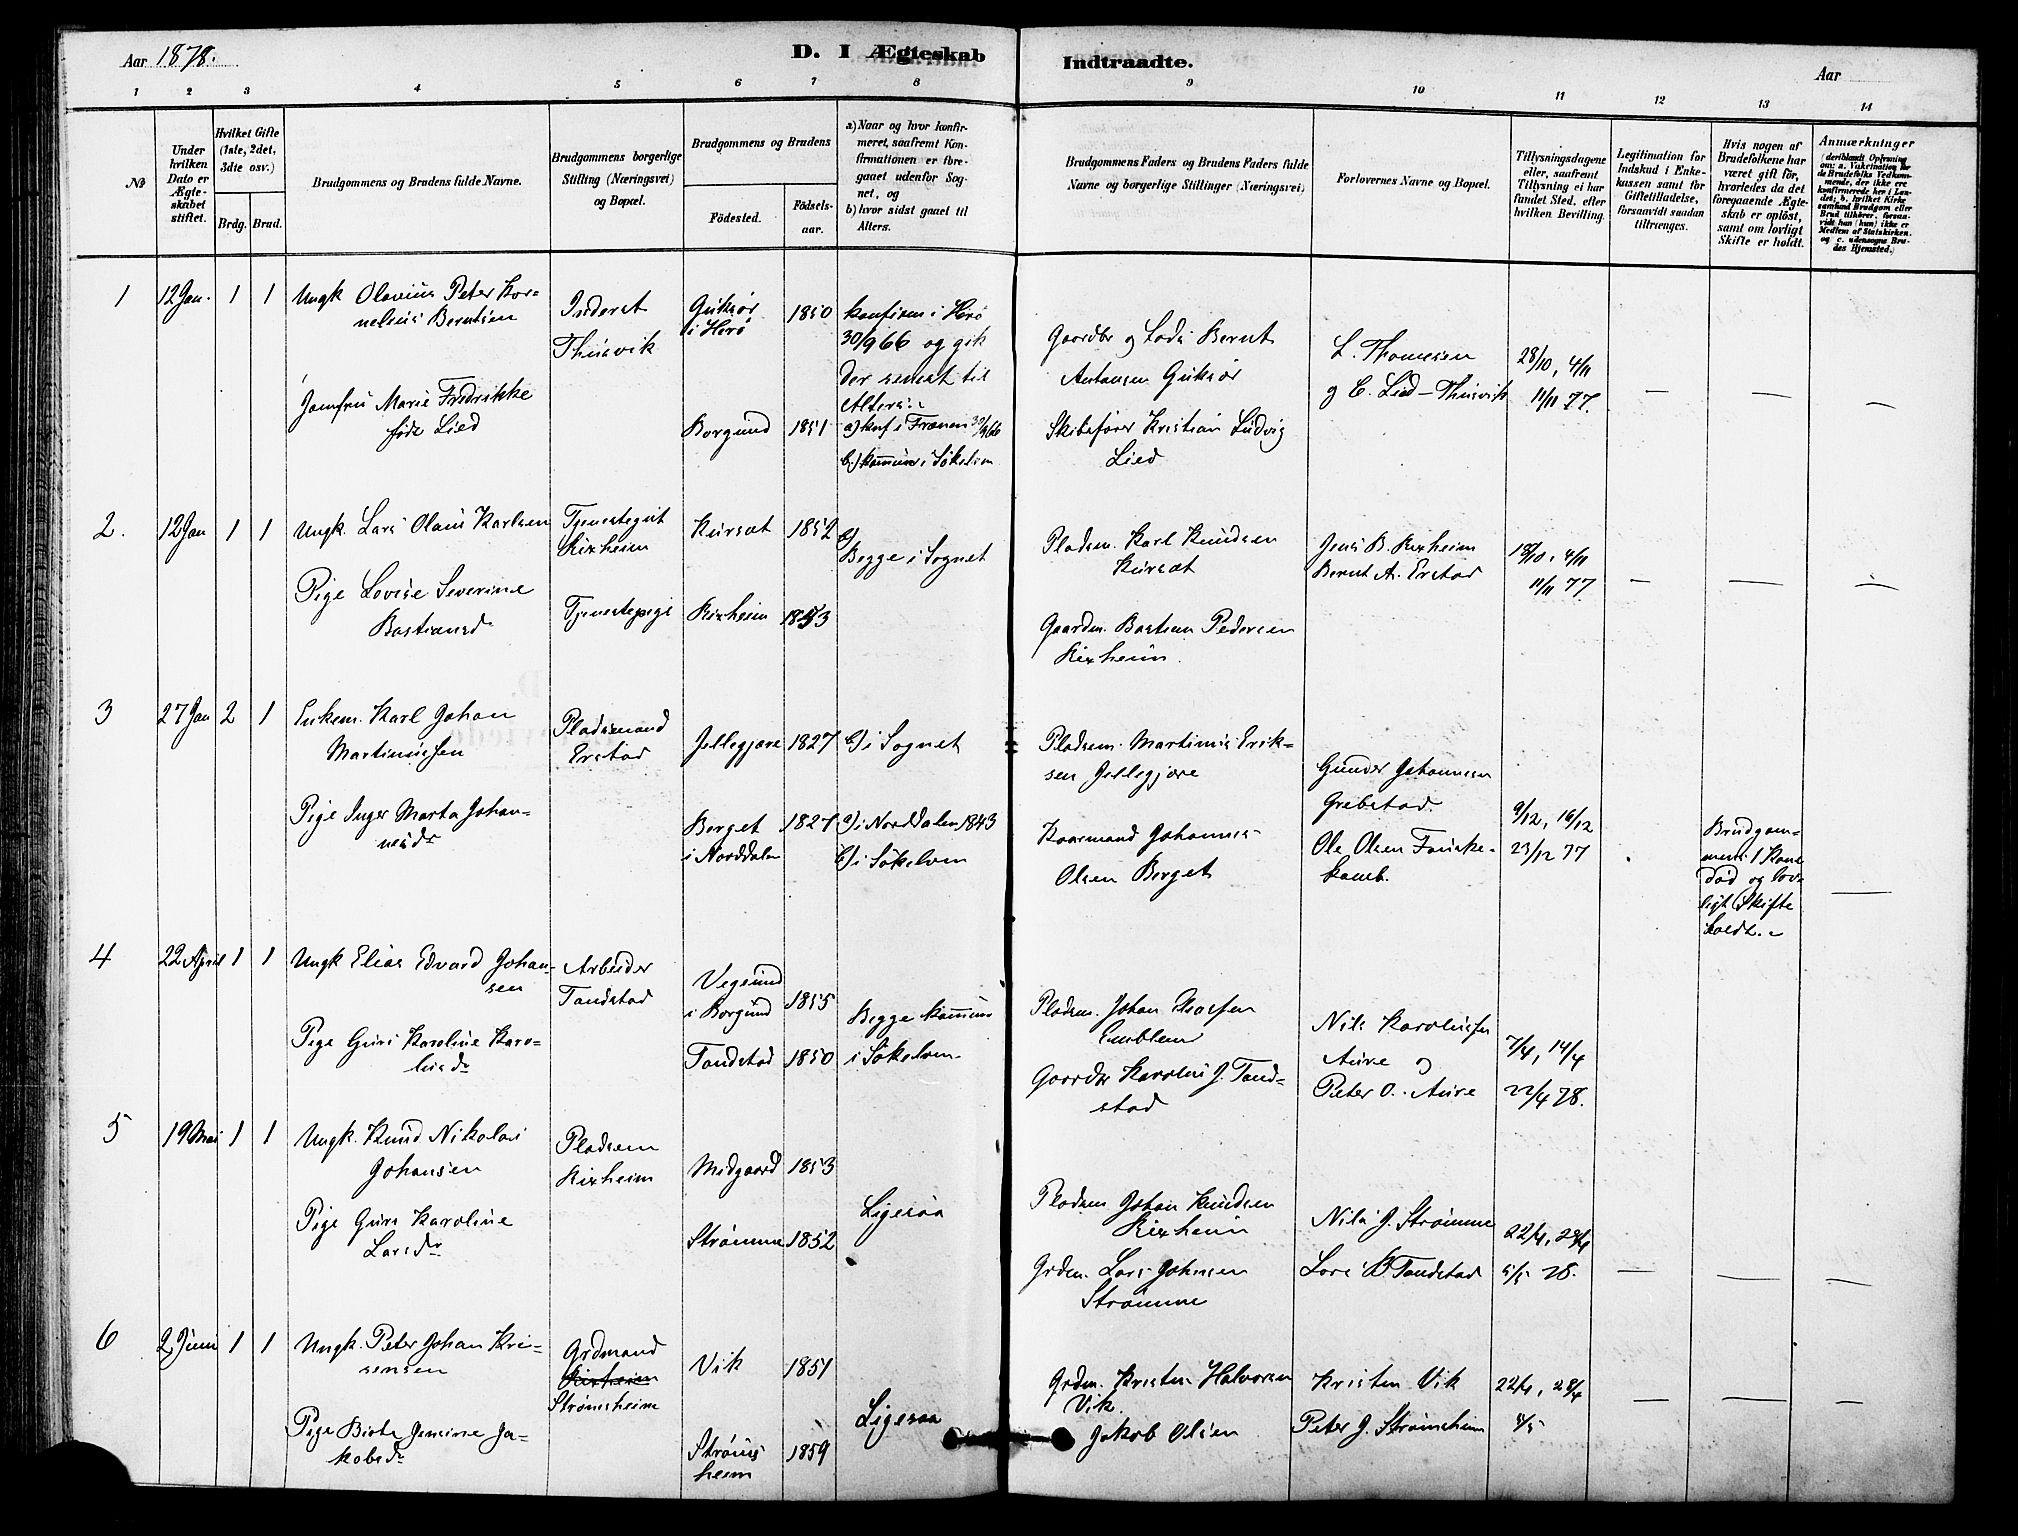 Aar 1878.
D. I Ægteskab Indtraadte.
Aar
1 2 3 4 5 6 7 8 9 10 11 12 13 14
№
Under hvilken Dato er Ægteskabet stiftet.
Hvilket Gifte (1ste, 2det, 3die osv.)
Brdg. Brud.
Brudgommens og Brudens fulde Navne.
Brudgommens borgerlige Stilling (Næringsvei) og Bopæl.
Brudgommens og Brudens
Fødested.
Fødselsaar.
a) Naar og hvor konfirmeret, saafremt Konfirmationen er foregaaet udenfor Sognet, og
b) hvor sidst gaaet til Alters.
Brudgommens Faders og Brudens Faders fulde Navne og borgerlige Stillinger (Næringsvei)
Forlovernes Navne og Bopæl.
Tillysningsdagene eller, saafremt Tillysning ei har fundet Sted, efter hvilken Bevilling.
Legitimation for Indskud i Enkekassen samt for Giftetilladelse, forsaavidt saadan tiltrænges.
Hvis nogen af Brudefolkene har været gift før, hvorledes da det foregaaende Ægteskab er opløst, samt om lovligt Skifte er holdt.
Anmærkninger
1 12 Jan. 1 1
Ungk Olavius Peter Kornelius Berntsen
Inderst Thusvik
Guksør i Herø
1850
konfirm i Herø 30/9 66 og gik der senest til Alters.
Gaardbr og Lods Bernt Antonsen Guksør
L. Thomesen og E. Lied - Thusvik
28/10, 4/11 11/11 77.
Jomfru Marie Fredrikke født Lied
Borgund
1851
a) konf i Frænen 30/9 66
b.) kommun i Søkelven
Skibsfører Kristian Ludvig Lied
— — —
2. 12 Jan 1 1
Ungk. Lars Olaus Karlsen
Tjenestegut Rixheim
Kursæt
1852
b) Begge i Sognet
Pladsm. Karl Knudsen Kursæt
Jens B. Rixheim
Bernt A. Erstad
28/10, 4/11 11/11 77
Pige Lovise Severine Bastiansd
Tjenestepige
Rixheim
1853
Gaardm. Bastian Pedersen Rixheim.
— — —
3 27 Jan 2 1
Enkem. Karl Johan Martinussen
Pladsmand Erstad
Jellegjære
1827
b) i Sognet
Pladsm. Martinus Eriksen Jellegjære
Gunder Johannesen Grebstad.
Ole Olsen Fauskekamb.
9/12, 16/12 23/12 77
Pige Inger Marta Johannesdr
Berget i Norddalen
1827
a) i Norddalen 1843
b) i Søkelven
Kaarmand Johannes Olsen Berget
Brudgommens 1 Kone død og lovligt Skifte holdt.
—
4 22 April 1 1
Ungk Elias Edvard Johansen
Arbeider Tandstad
Vegsund i Borgund
1855
Begge kommun i Søkelven
Pladsm. Johan Emblem
Nils Karolussen Aure og
Peter O. Aure
7/4, 14/4 22/4 78.
Pige Guri Karoline Karolusdr
Tandstad
1850
Gaardbr Karolus J. Tandstad
5 19 Mai 1 1
Ungk. Knud Nikolai Johansen
Pladsm Rixheim
Midgaard
1853
Ligesaa
Pladsm Johan Knudsen Rixheim
Nils J. Strømme
Lars B Tandstad
22/4, 28/4 5/5 78.
Pige Guri Karoline Larsdr
Strømme
1852
Grdm. Lars Johnsen Strømme
— — —
6 2 Juni 1 1
Ungk. Peter Johan Krisensen
Grdmand Rixheim Strømsheim
Vik
1851
Ligesaa
Grdm. Kristen Halvorsen Vik.
Kristen Vik
Peter J. Strømsheim
22/4, 28/4 5/5
Pige Birte Jensine Jakobsdr
Strømsheim
1859
Jakob Olsen
— — —